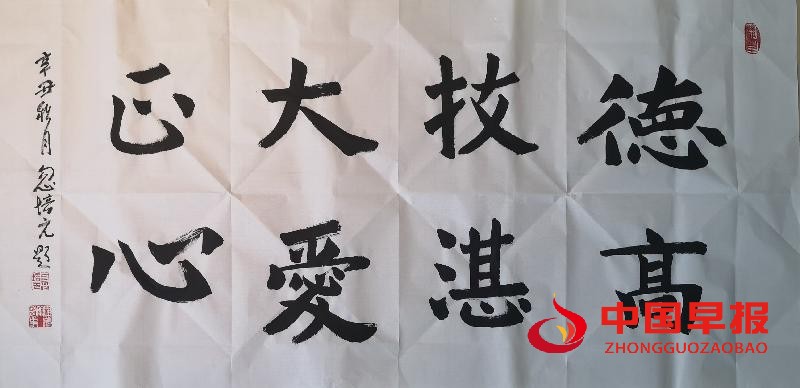 德高
技湛
大愛
正心
辛丑秋月 忽培元題
中国早报
ZHONGGUOZAOBAO